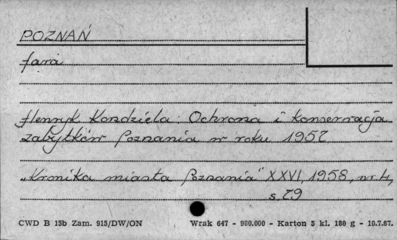 POZNAŃ
fara
Henryk Kondziela: Ochrona i konserwacja
zabytków Poznania w roku 1957
"Kronika miasta Poznania" XXVI, 1958, nr. 4,
s. 79
CWD B 15b Zam. 913/DW/ON Wrak 647 - 980.000 - Karton 5 kl. 180 g - 10.7.67.